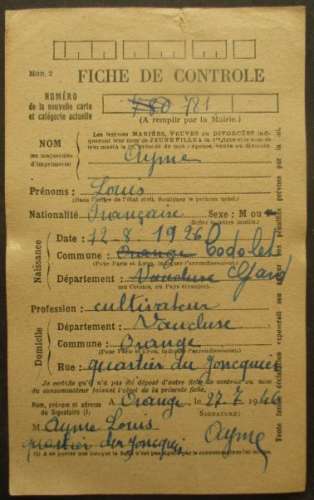 Mod. 2 FICHE DE CONTROLE
NUMÉRO
de la nouvelle carte
et catégorie actuelle
780 781
(A remplir par la Mairie.)
Les femmes MARIÉES, VEUVES ou DIVORCÉES
NOM
en majuscules
d'imprimerie
Ayme
Prénoms : Louis
(Dans l'ordre de l'état civil. Souligner le prénom usuel.)
Nationalité Française Sexe : M ou
Naissance
Date : 12-8-1926
Commune : Orange Codolet
(Pour Paris et Lyon, indiquer l'arrondissement.)
Département : Vaucluse Gard
ou Colonie, ou Pays étranger
Profession : cultivateur
Domicile
Département : Vaucluse
Commune : Orange
(Pour Paris et Lyon, indiquer l'arrondissement.)
Rue : quartier du Joncquier
Je certifie qu'il n'a pas été déposé d'autre fiche de contrôle au nom
du consommateur faisant l'objet de la présente fiche.
Nom, prénom et adresse
du Signataire
A Orange le 27.6.1946
SIGNATURE :
M Ayme Louis
quartier du Joncquier
Ayme